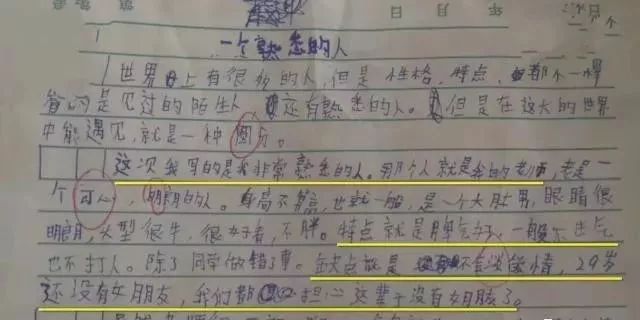 一个熟悉的人
世界上有很多的人，但是性格，特点，都不一样
是见过的陌生人，还有熟悉的人。但是在这大的世界
中能遇见，就是一种圆分。
这次我写的是我非常熟悉的人。那个人就是我的老师，老是一
个可心，明朗的人。身高不算高，也就一般，是一个大肚男，眼睛很
明朗，火型很牛，很好看，不胖。特点就是脾气好，一般不生气
也不打人。除了同学做错了事。缺点就是不会谈感情，29岁
还没有女朋友，我们都担心这辈子没有媳腋了。